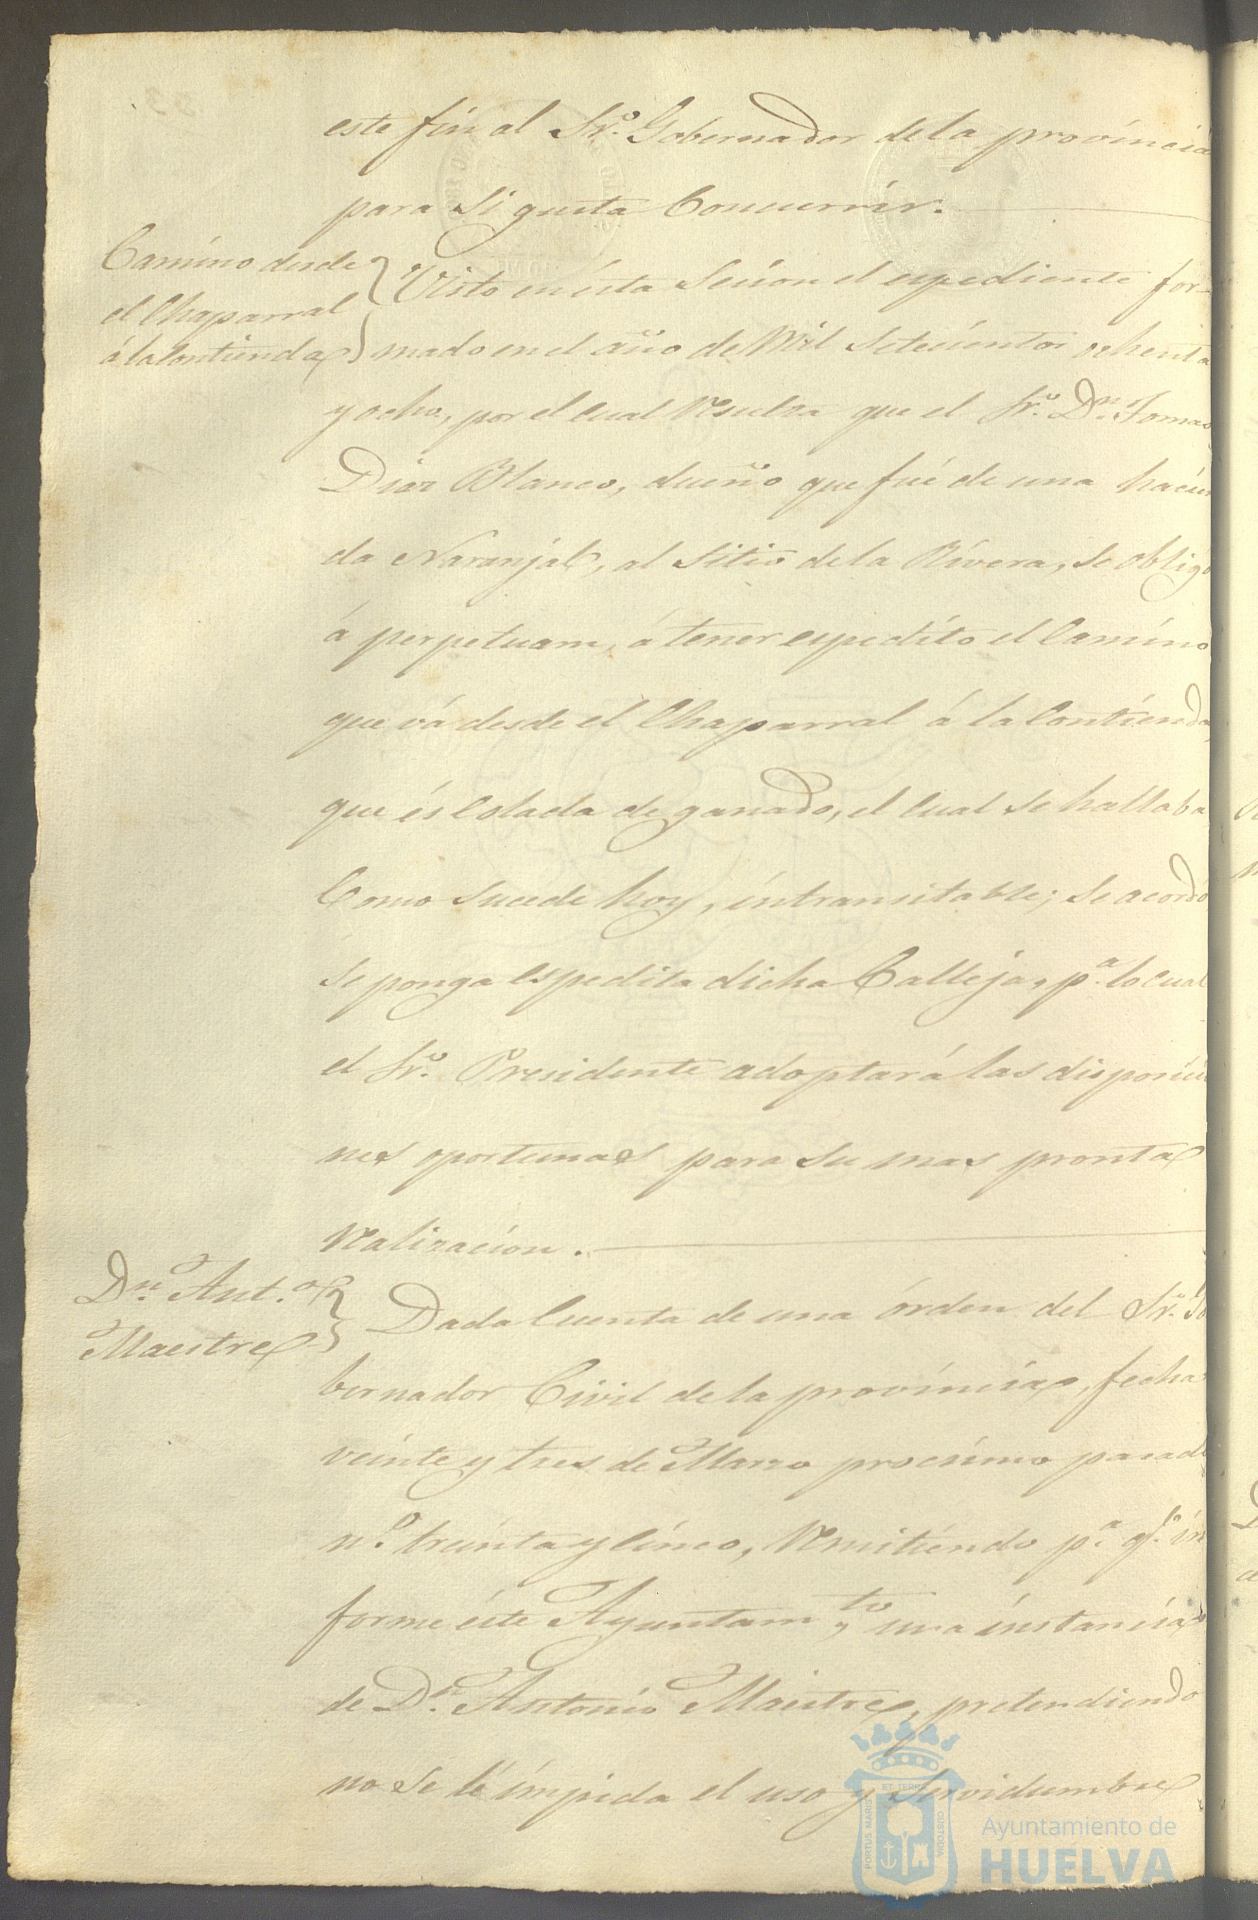 este fin al Sr. Gobernador de la provincia
para si gusta Concurrir.
Camino desde
el Chaparral
á la Contienda
Visto en ésta Sesion el espediente for-
mado en el año de Mil Setecientos ochenta
y ocho, por el Cual Resulta que el Sr. Dn. Tomas
Diaz Blanco, dueño que fué de una hacien
da Naranjal, al Sitio de la Rivera, se obligó
á perpetuam, á tener espedito el Camino
que vá desde el Chaparral á la Contienda,
que és Colada de ganado, el Cual se hallaba
Como Sucede hoy, intransitable; Se acordó
se ponga espedita dicha Calleja, pa. lo cual
el Sr. Presidente adoptará las disposicio
nes oportunas para su mas pronta
Realizacion.
Dn. Anto.
Maestre
Dada Cuenta de una órden del Sr. Go
bernador Civil de la provincia, fecha
veinte y tres de Marzo procsimo pasado
no. treinta y Cinco, Remitiendo pa. qe. in
forme éste Ayuntamto, una instancia
de Dn. Antonio Maestre, pretendiendo
no se le impida el uso y Servidumbre
PORTUS MARIS
ET TERRE
CUSTODIA
Ayuntamiento de
HUELVA